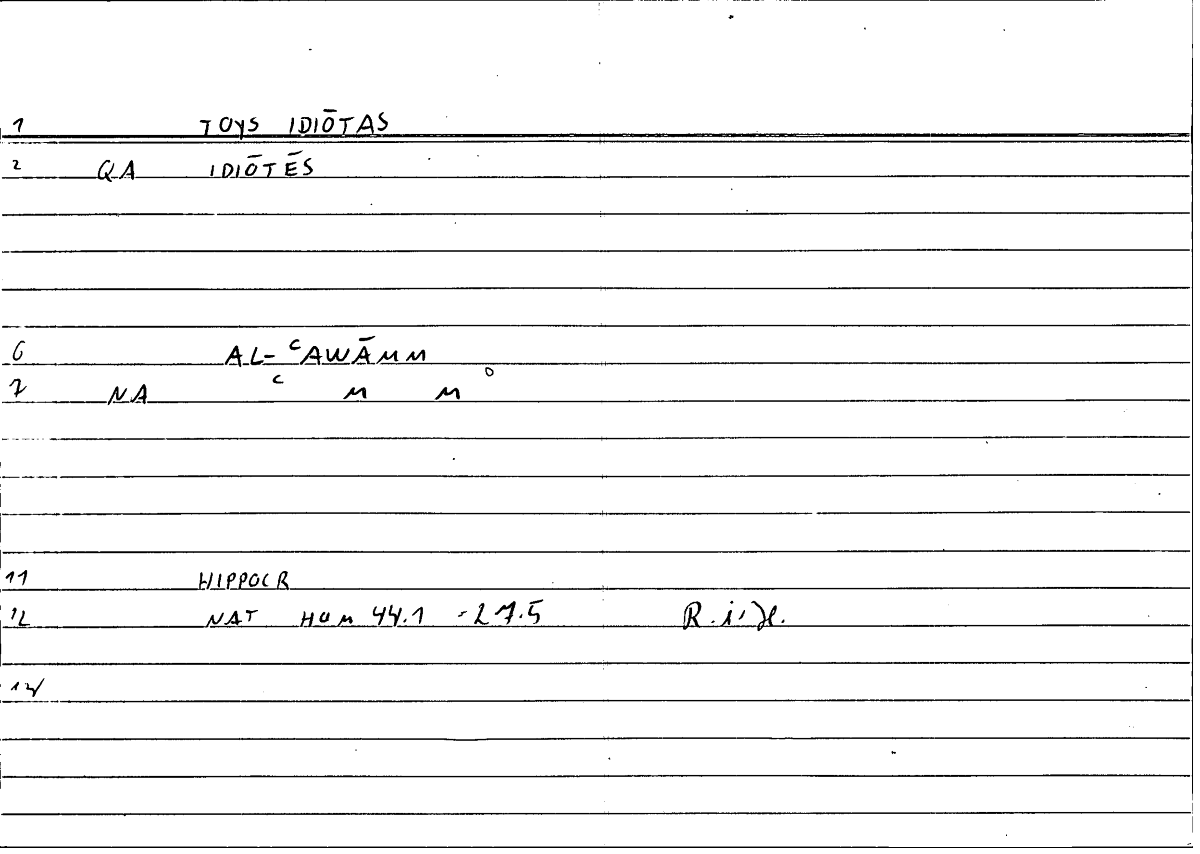 1 TOYS IDIŌTAS
2 QA IDIŌTĒS
6 AL-ᶜAWĀMM
7 NA ᶜ M M °
11 HIPPOCR
12 NAT HOM 44.1 -27.5